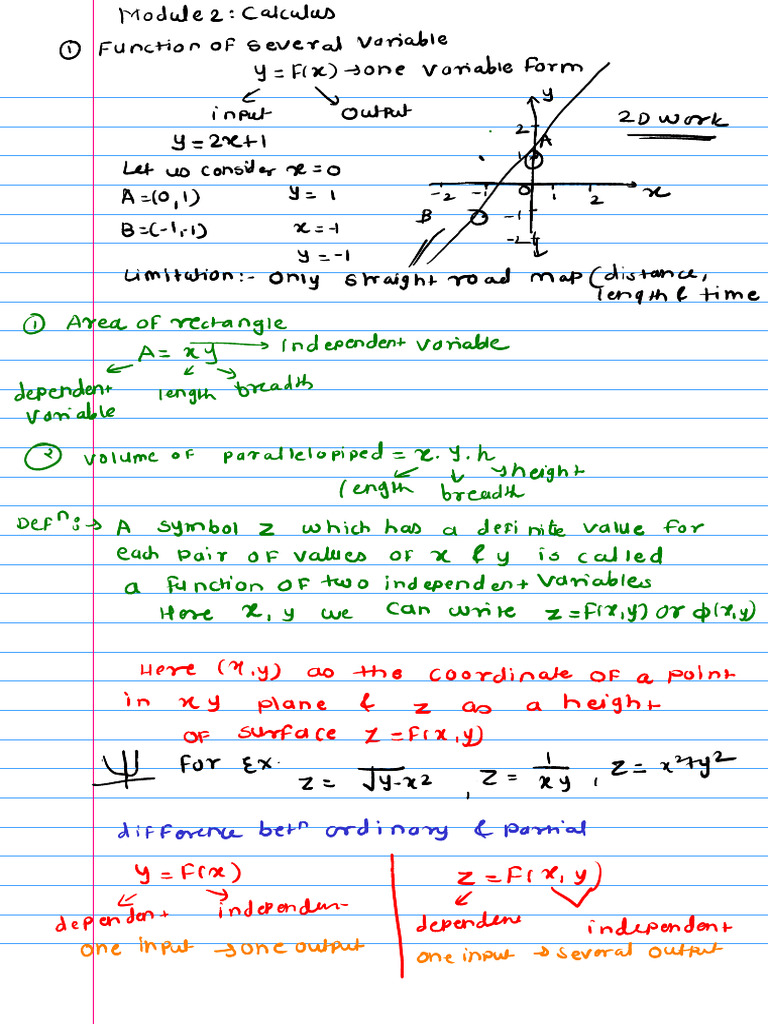 Module 2: Calculus
① Function of several variable
y = F(x) → one variable form
input output
y = 2x+1
2D work
Let us consider x = 0
A = (0,1) y = 1
B = (-1,-1) x = -1
y = -1
y
2
A
1
-2 -1 0 1 2 x
B -1
-2
Limitation:- only straight road map (distance,
length & time
① Area of rectangle
A = xy → independent variable
dependent variable length breadth
② volume of parallelopiped = x.y.h
length breadth height
Defⁿ:→ A symbol z which has a definite value for
each pair of values of x & y is called
a function of two independent variables
Here x, y we can write z = F(x,y) or φ(x,y)
Here (x,y) as the coordinate of a point
in xy plane & z as a height
of surface z = F(x,y)
For Ex. z = √y-x², z = 1/xy, z = x²+y²
difference betⁿ ordinary & partial
y = F(x) z = F(x,y)
dependent independen- dependent independent
one input → one output one input → several output